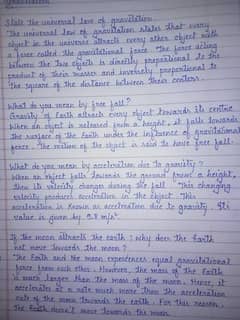 Gravitation
State the universal law of gravitation
The universal law of gravitation states that every
object in the universe attracts every other object with
a force called the gravitational force. The force acting
between the two objects is directly proportional to the
product of their masses and inversely proportional to
the square of the distance between their centers.
What do you mean by free fall?
Gravity of Earth attracts every object towards its centre.
When an object is released from a height, it falls towards
the surface of the Earth under the influence of gravitational
force. The motion of the object is said to have free fall.
What do you mean by acceleration due to gravity?
When an object falls towards the ground from a height,
then its velocity changes during the fall. This changing
velocity produces acceleration in the object. This
acceleration is known as acceleration due to gravity. Its
value is given by 9.8 m/s²
If the moon attracts the earth, why does the Earth
not move towards the moon?
The Earth and the moon experiences equal gravitational
forces from each other. However, the mass of the Earth
is much larger than the mass of the moon. Hence, it
accelerates at a rate much more than the acceleration
rate of the moon towards the Earth. For this reason,
the Earth doesn't move towards the moon.